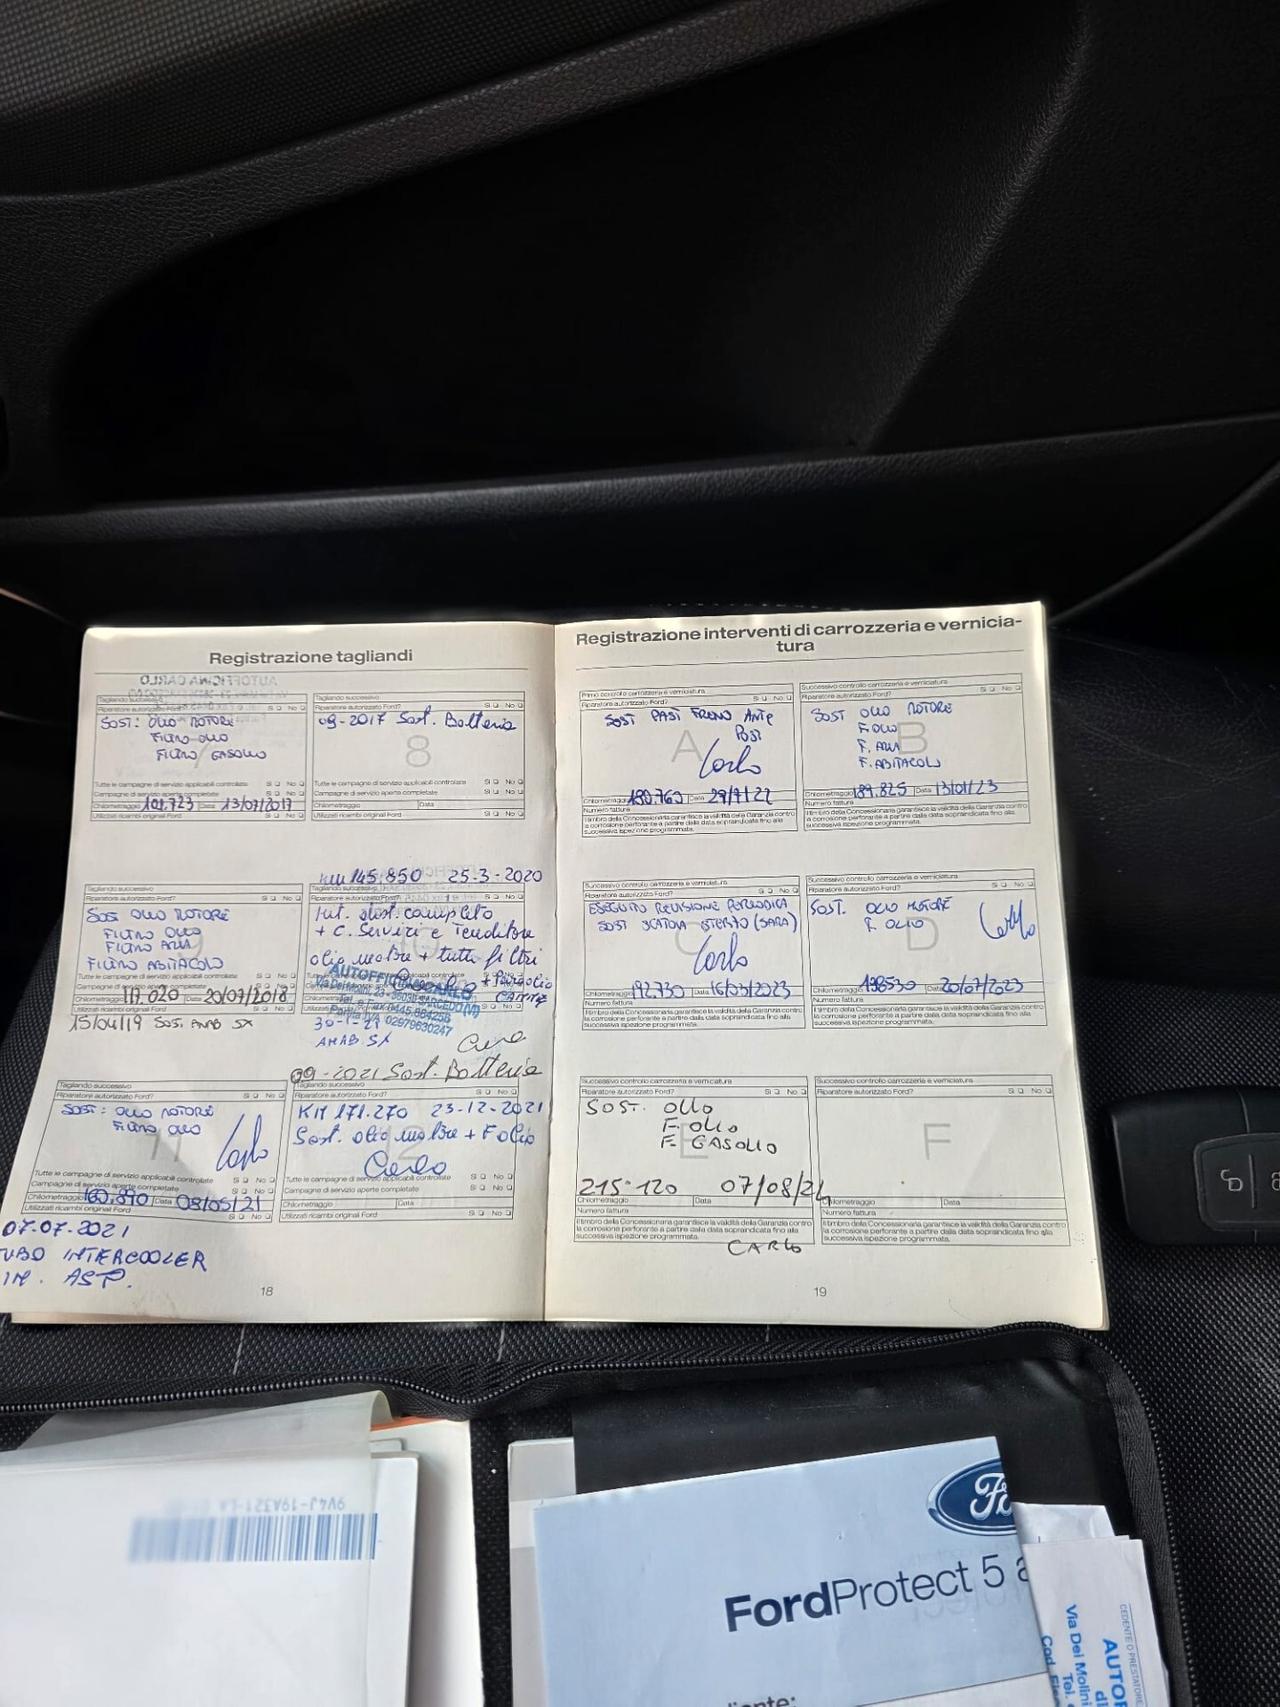 Registrazione tagliandi
Tagliando successivo
Riparatore autorizzato Ford? Si No
SOST: OLIO MOTORE
FILTRO OLIO
FILTRO GASOLIO
7
Tutte le campagne di servizio applicabili controllate Si No
Campagne di servizio aperte completate Si No
Chilometraggio 101.723 Data 13/07/2017
Utilizzati ricambi originali Ford Si No
Tagliando successivo
Riparatore autorizzato Ford? Si No
09-2017 Sost. Batteria
8
Tutte le campagne di servizio applicabili controllate Si No
Campagne di servizio aperte completate Si No
Chilometraggio Data
Utilizzati ricambi originali Ford Si No
Tagliando successivo
Riparatore autorizzato Ford? Si No
SOST OLIO MOTORE
FILTRO OLIO
FILTRO ARIA
FILTRO ABITACOLO
9
Tutte le campagne di servizio applicabili controllate Si No
Campagne di servizio aperte completate Si No
Chilometraggio Data 20/07/2018
Utilizzati ricambi originali Ford Si No
15/04/19 SOST. SX
KM 145.850 25-3-2020
Riparatore autorizzato Ford? Si No
Kit dist. completo
+ C. Servizi e Tenditore
olio motore + tutti filtri
+ Paraolio
AUTOFFICINA CARLO
Via Dei Molini, 23 - 36030 SARCEDO (VI)
Tel. e Fax 0445 884256
Partita IVA 02979630247
SX
09-2021 Sost. Batteria
Tagliando successivo
Riparatore autorizzato Ford? Si No
SOST: OLIO MOTORE
FILTRO OLIO
11
Carlo
Tutte le campagne di servizio applicabili controllate Si No
Campagne di servizio aperte completate Si No
Chilometraggio 160.890 Data 03/05/21
Utilizzati ricambi originali Ford Si No
07.07.2021
INTERCOOLER
Tagliando successivo
Riparatore autorizzato Ford? Si No
KM 171.270 23-12-2021
Sost. olio motore + F olio
12
Carlo
Tutte le campagne di servizio applicabili controllate Si No
Campagne di servizio aperte completate Si No
Chilometraggio Data
Utilizzati ricambi originali Ford Si No
18
Registrazione interventi di carrozzeria e vernicia-
tura
Primo controllo carrozzeria e verniciatura
Riparatore autorizzato Ford? Si No
SOST PAST FRENO ANT e
POST
A
Carlo
Chilometraggio 180.760 Data
Numero fattura
Il timbro della Concessionaria garantisce la validità della Garanzia contro
la corrosione perforante a partire dalla data sopraindicata fino alla
successiva ispezione programmata.
Successivo controllo carrozzeria e verniciatura
Riparatore autorizzato Ford? Si No
SOST OLIO MOTORE
F. OLIO
F. ARIA
F. ABITACOLO
B
Chilometraggio 189.825 Data 13/01/23
Numero fattura
Il timbro della Concessionaria garantisce la validità della Garanzia contro
la corrosione perforante a partire dalla data sopraindicata fino alla
successiva ispezione programmata.
Successivo controllo carrozzeria e verniciatura
Riparatore autorizzato Ford? Si No
ESEGUITO REVISIONE PERIODICA
SOST SCATOLA STERZO (SARA)
C
Carlo
Chilometraggio 192.730 Data 16/03/2023
Numero fattura
Il timbro della Concessionaria garantisce la validità della Garanzia contro
la corrosione perforante a partire dalla data sopraindicata fino alla
successiva ispezione programmata.
Successivo controllo carrozzeria e verniciatura
Riparatore autorizzato Ford? Si No
SOST. OLIO MOTORE
F. OLIO
D
Carlo
Chilometraggio 198530 Data 20/07/2023
Numero fattura
Il timbro della Concessionaria garantisce la validità della Garanzia contro
la corrosione perforante a partire dalla data sopraindicata fino alla
successiva ispezione programmata.
Successivo controllo carrozzeria e verniciatura
Riparatore autorizzato Ford? Si No
SOST. OLIO
F. OLIO
F. GASOLIO
E
215.120 07/08/24
Chilometraggio Data
Numero fattura
Il timbro della Concessionaria garantisce la validità della Garanzia contro
la corrosione perforante a partire dalla data sopraindicata fino alla
successiva ispezione programmata.
CARLO
Successivo controllo carrozzeria e verniciatura
Riparatore autorizzato Ford? Si No
F
Chilometraggio Data
Numero fattura
Il timbro della Concessionaria garantisce la validità della Garanzia contro
la corrosione perforante a partire dalla data sopraindicata fino alla
successiva ispezione programmata.
19
FordProtect 5 a
CEDENTE O PRESTATORE
AUTOF
di
Via Dei Molini
Tel.